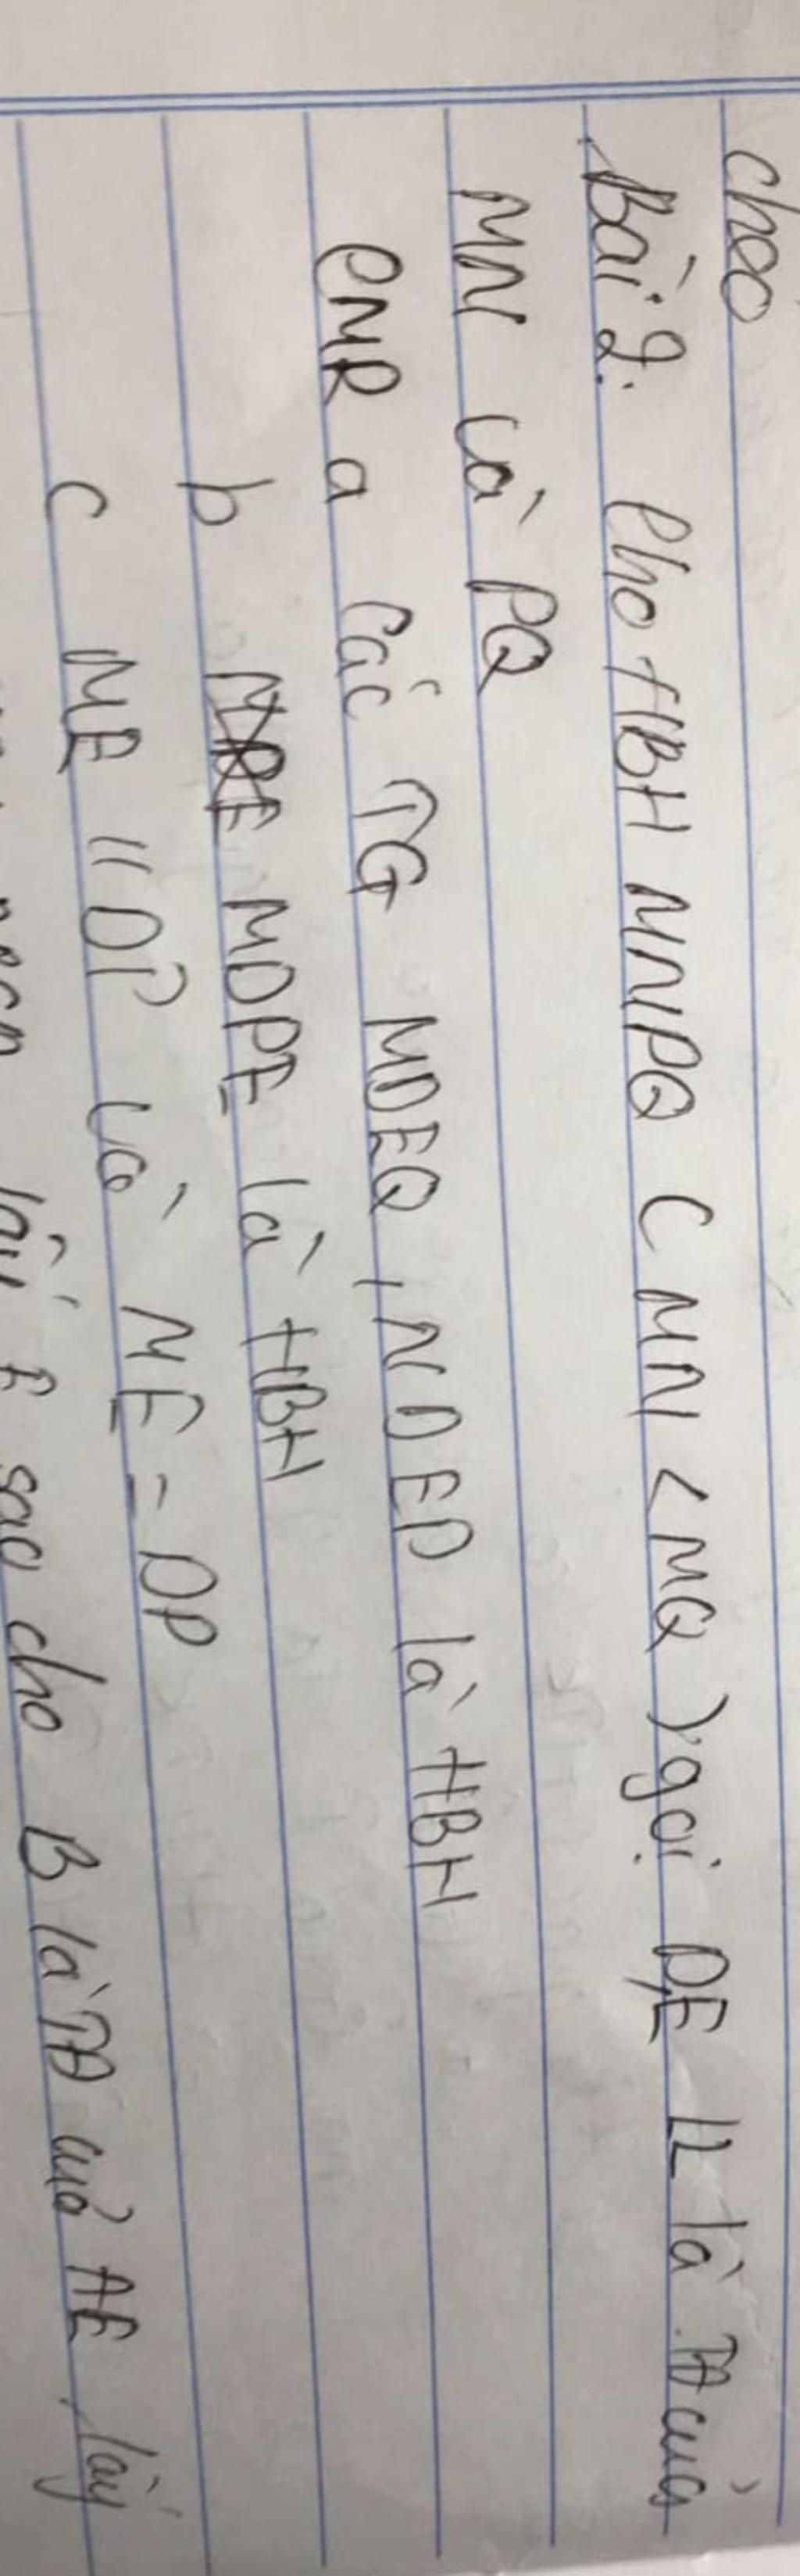 chéo
Bài 2: Cho HBH MNPQ ( MN < MQ ) gọi D,E LL là TĐ của
MN và PQ
CMR a Các TG MDEQ, NDEP là HBH
b MDPE là HBH
c ME // DP và ME = DP
lấy E sao cho B là TĐ của AE, lấy